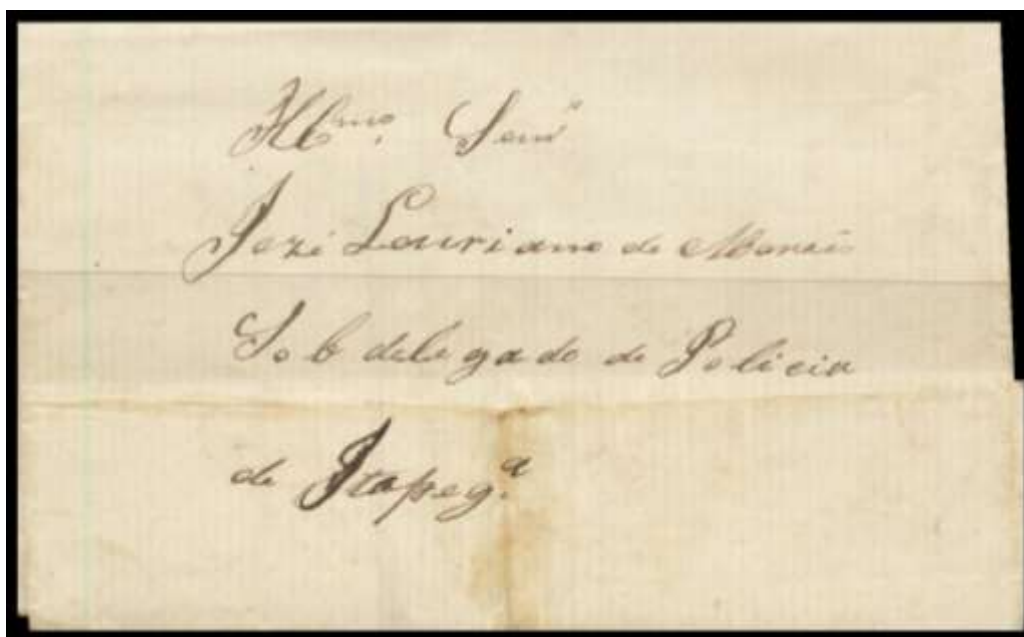 Illmo. Senr
Jozé Louriano de Moraes
Sob delegado de Policia
de Itapega.